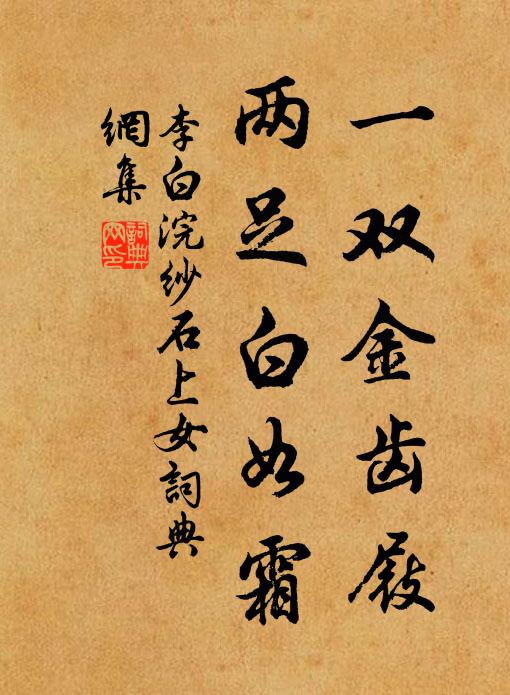 一双金齿屐
两足白如霜
李白浣纱石上女詞典
網集
詞典
网印